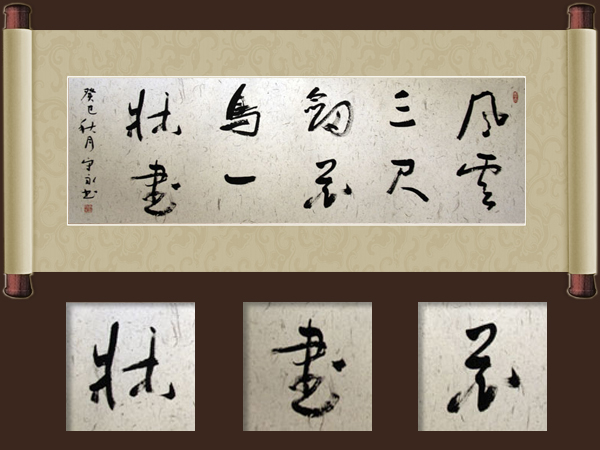 風雲
三尺
劍花
鳥一
牀書
癸巳秋月守永书
牀
書
花